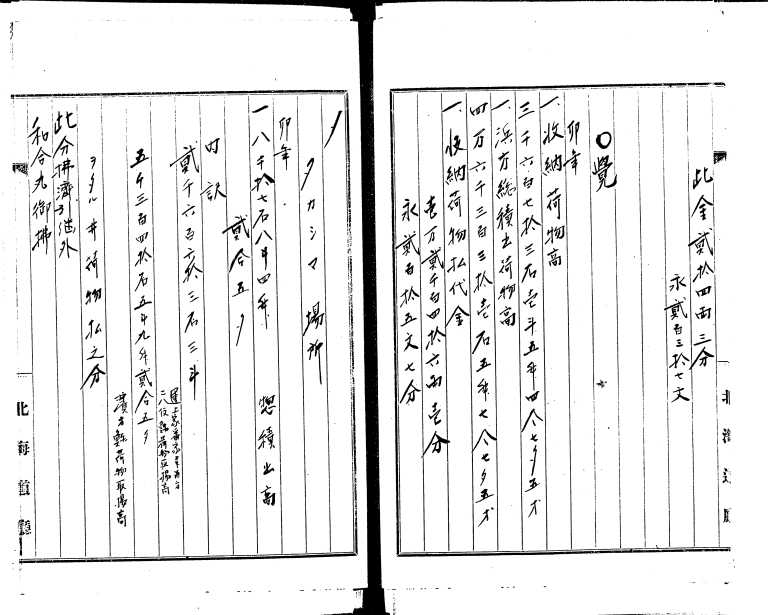 此金貳拾四両三分
永貳百三拾七文
〇覺
卯年
一、收納荷物高
三千六百七拾三石壱斗五升四合七夕五才
一、浜方総積出荷物高
四万六千三百三拾壱石五升七合七夕五才
一、收納荷物払代金
壱万貳千百四拾六両壱分
永貳百拾五文七分
北海道廳
〆
タカシマ場所
卯年
惣積出高
一八千拾七石八斗四升
貳合五夕
内訳
貳千六百六拾三石三斗
二八役諸荷物取揚高
五千三百四拾石五斗九升貳合五夕
濱方惣荷物取揚高
ヲタル井荷物払之分
此分拂濟
和合丸御拂
北海道廳